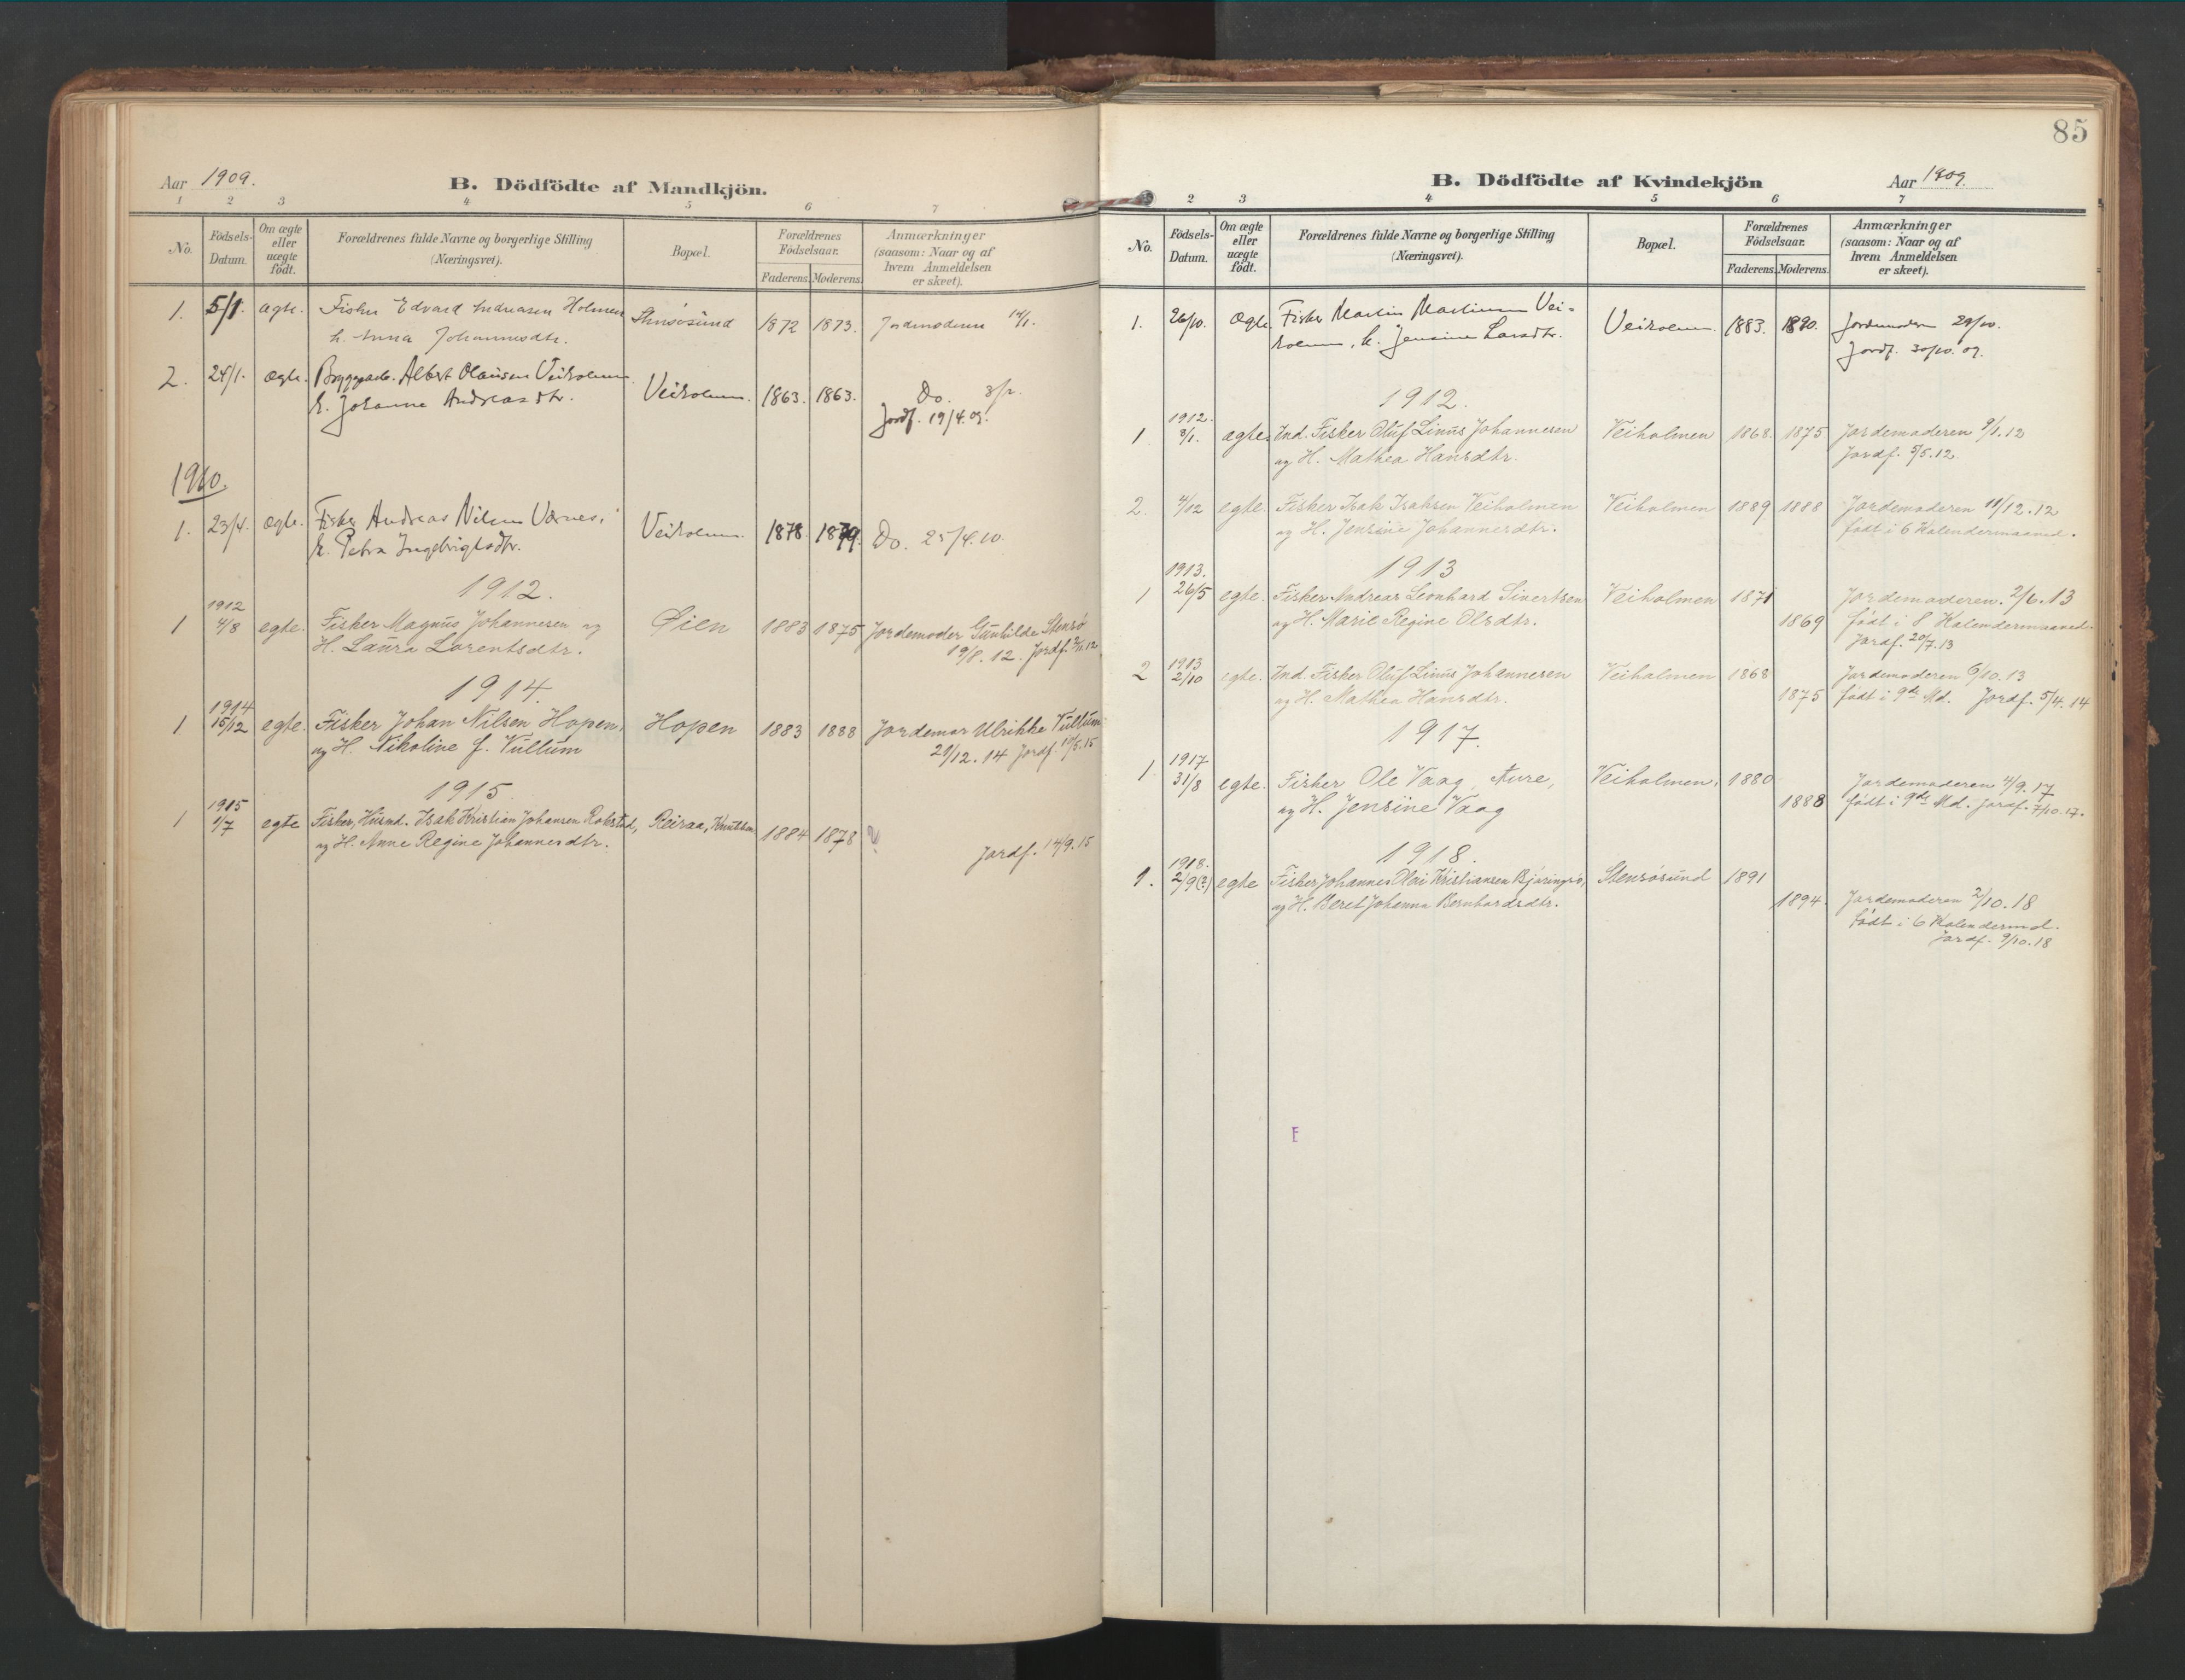 Aar 1909.
B. Dödfödte af Mandkjön.
1 2 3 4 5 6 7
No.
Födsels-Datum.
Om ægte eller uægte födt.
Forældrenes fulde Navne og borgerlige Stilling (Næringsvei).
Bopæl.
Forældrenes Födselsaar.
Faderens. Moderens.
Anmærkninger (saasom: Naar og af hvem Anmeldelsen er skeet).
1. 5/1. ægte. Fisker Edvard Andreasen Holmen Stensösund 1872 1873. Jordmoderen 14/1.
h. Anna Johannesdtr.
2. 24/1. ægte. Albert Olausen Veiholmen Veiholmen. 1863. 1863. Do. 3/2.
h. Johanna Andreasdtr. Jordf. 19/4.09.
1910.
1. 23/4. ægte. Fisker Andreas Nilsen Værnes, Veiholmen. 1878. 1879. Do. 25/4.10.
h. Petra Ingebrigtsdtr.
1912.
1912
1 4/8 egte. Fisker Magnus Johannesen og Øien 1883 1875 Jordemoder Gunhilde Stensö
H. Laura Lorentsdtr. 19/8.12. Jordf.
1914.
1914
1 15/12 egte. Fisker Johan Nilsen Hopen, Hopen 1883 1888 Jordemor Ulrikke Vullum
og H. Nikoline f. Vullum 21/12.14 Jordf. 10/5.15
1915.
1915
1 1/7 egte Fisker, Husmd. Isak Kristian Johansen Rokstad, Reiraa, 1884 1878
og H. Anne Regine Johannesdtr. Jordf. 14/9.15
85
B. Dödfödte af Kvindekjön
Aar 1909.
2 3 4 5 6 7
No.
Födsels-Datum.
Om ægte eller uægte födt.
Forældrenes fulde Navne og borgerlige Stilling (Næringsvei).
Bopæl.
Forældrenes Födselsaar.
Faderens. Moderens.
Anmærkninger (saasom: Naar og af hvem Anmeldelsen er skeet).
1. 26/10. Ægte. Fisker Martin Martinsen Vei= Veiholmen. 1883. 1890. Jordmoderen 29/10.
holmen, h. Jensine Larsdtr. Jordf. 30/10.09.
1912.
1912.
1 8/1. ægte. Ind. Fisker Oluf Linus Johannesen Veiholmen 1868. 1875 Jordemoderen 9/1.12
og H. Mathea Hansdtr. Jordf. 5/5.12.
2. 4/12 egte. Fisker Isak Isaksen Veiholmen Veiholmen 1889 1888 Jordemoderen 11/12.12
og H. Jensine Johannesdtr. født i 6 Kalendermaaned.
1913
1913.
1 26/5 egte. Fisker Andreas Leonhard Sivertsen Veiholmen 1871 Jordemoderen. 2/6.13
og H. Marie Regine Olsdtr. 1869 født i 8 Kalendermaaned.
Jordf. 20/7.13
1913
2 2/10 egte. Ind. Fisker Oluf Linus Johannesen Veiholmen 1868 Jordemoderen 6/10.13
og H. Mathea Hansdtr. 1875 født i 9de Md. Jordf. 5/4.14
1917.
1917
1 31/8 egte. Fisker Ole Vaag, Aure, Veiholmen, 1880 Jordemoderen 4/9.17
og H. Jensine Vaag 1888 født i 9de Md. Jordf. 7/10.17.
1918.
1918.
1. 2/9(?) egte Fisker Johannes Olai Kristiansen Björingsö, Stensösund 1891
og H. Beret Johanna Bernhardsdtr. 1894. Jordemoderen 2/10.18
født i 6 Kalendermd.
Jordf. 9/10.18
E